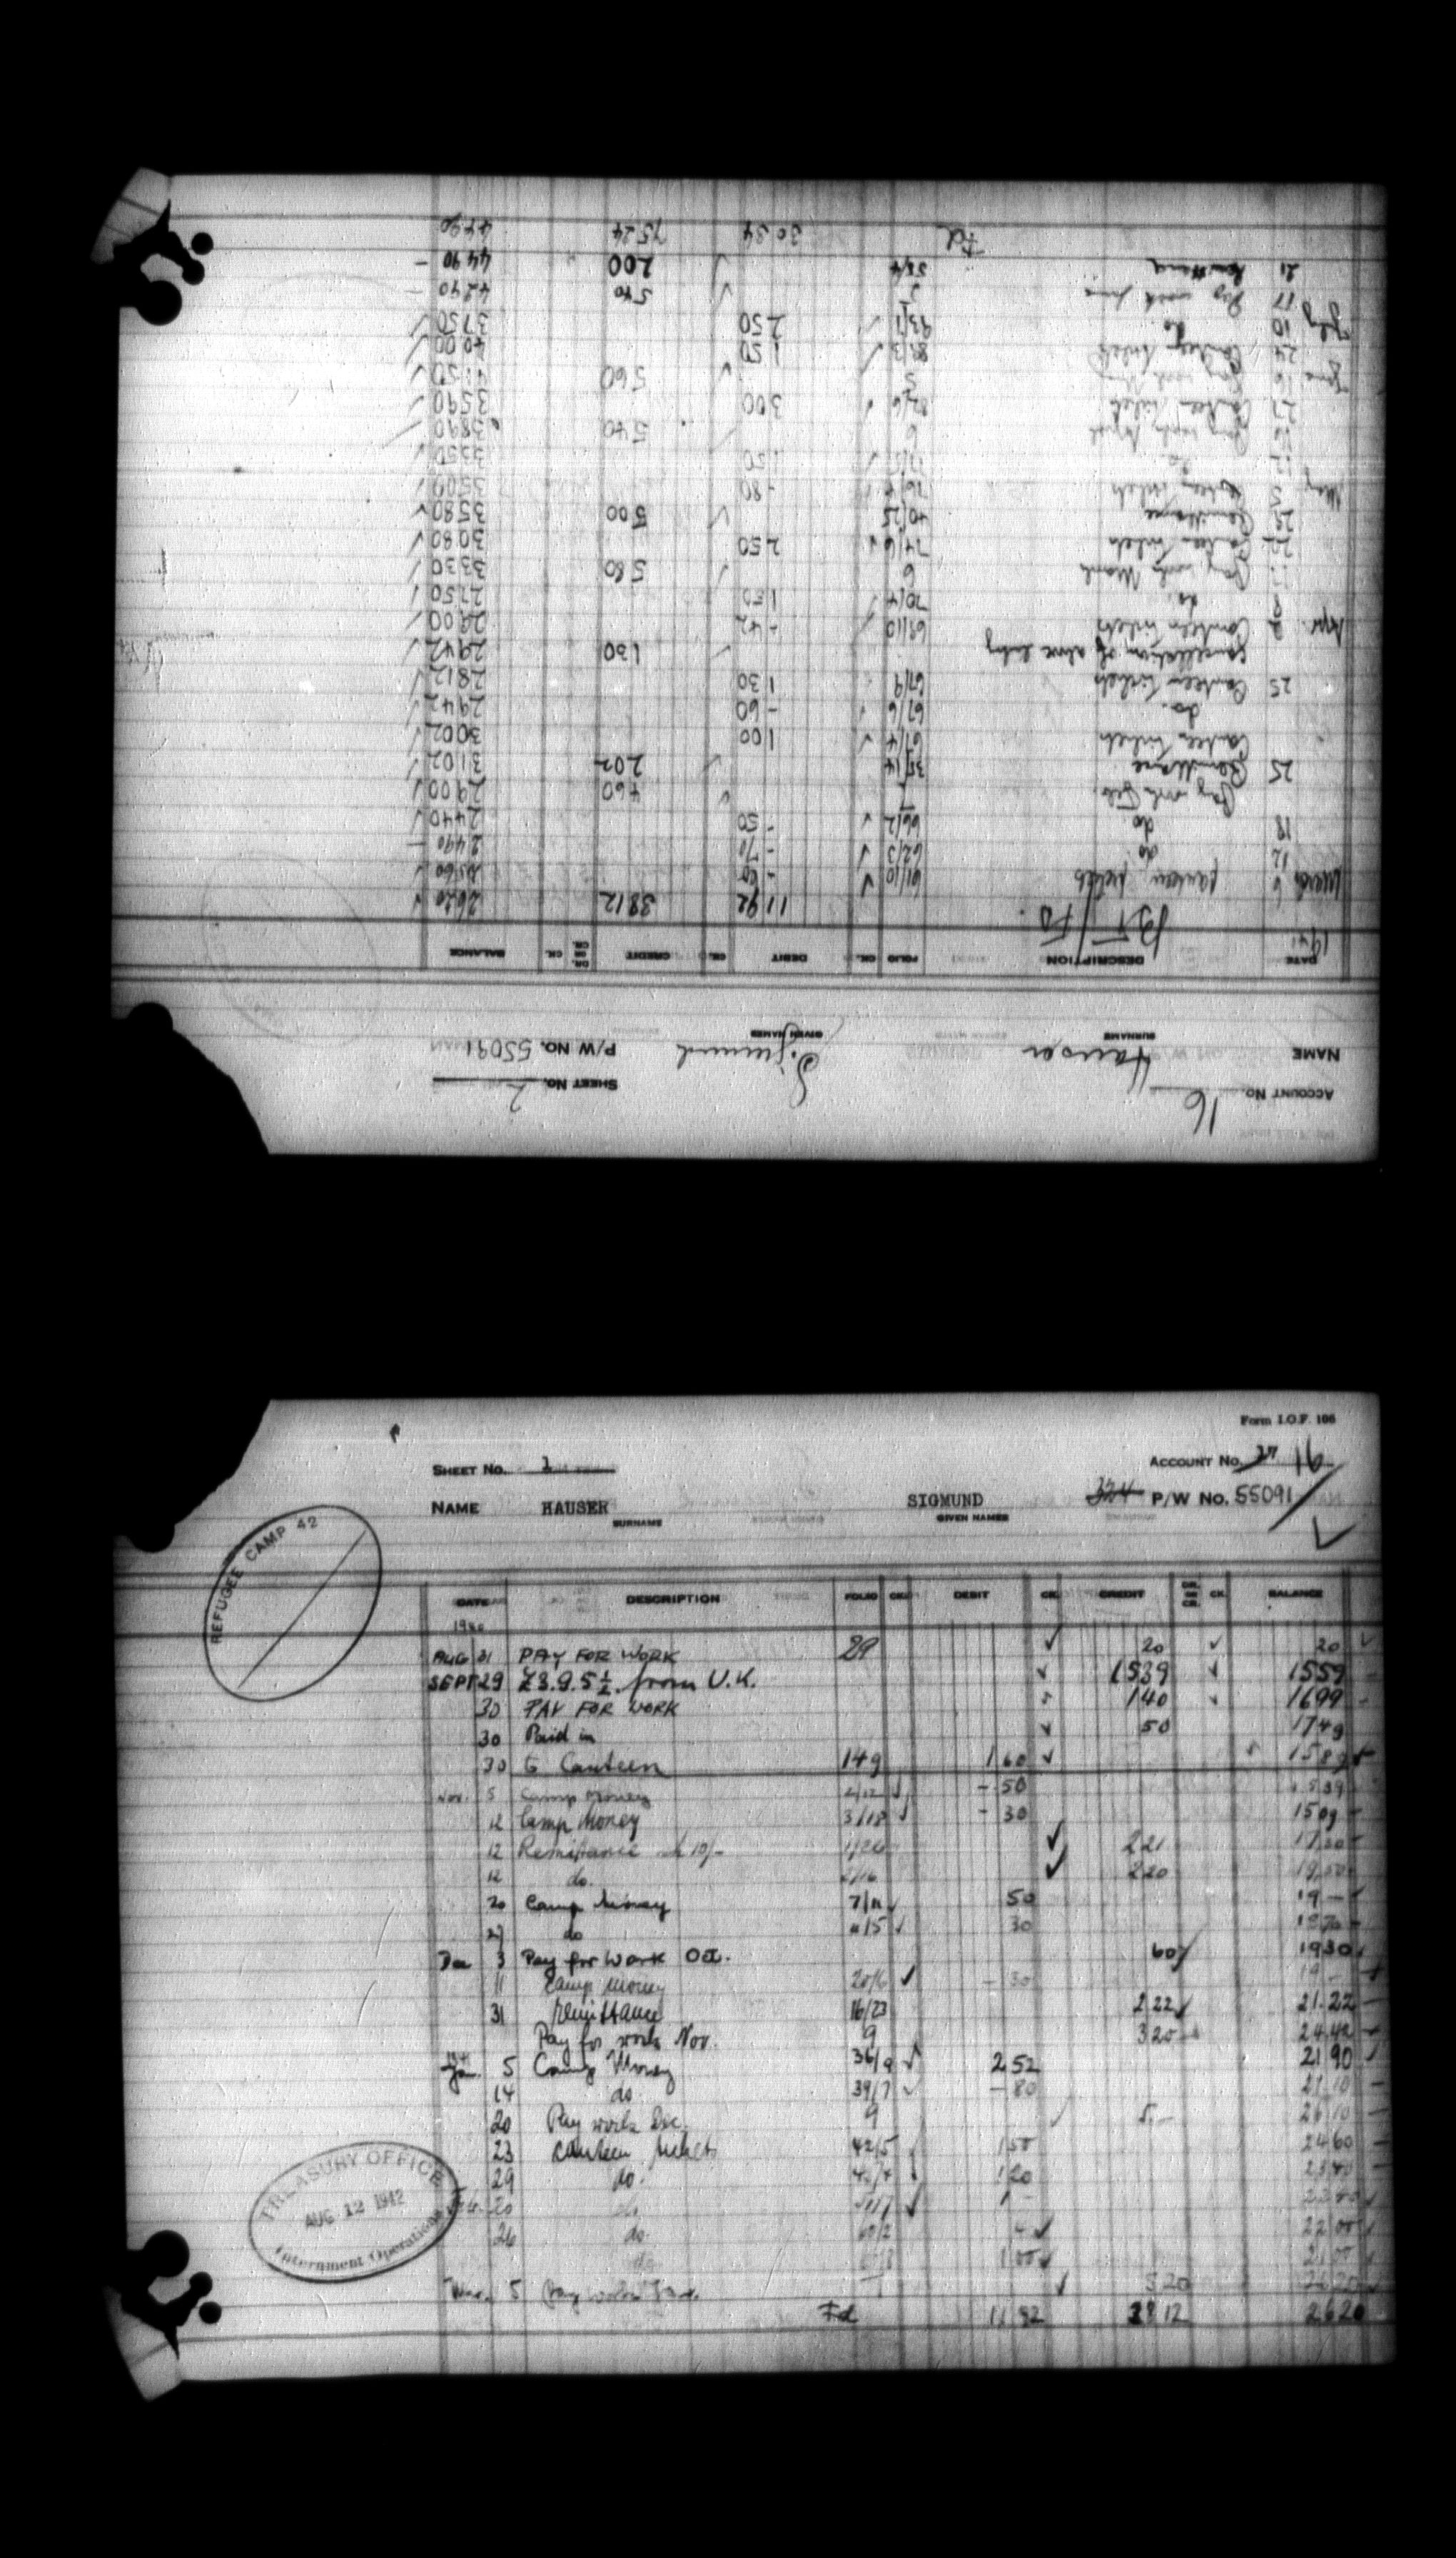 Form I.O.F. 106
SHEET No. 1 ACCOUNT No. 27 16
NAME HAUSER SIGMUND 324 P/W No. 55091
SURNAME GIVEN NAMES
REFUGEE CAMP 42
DATE DESCRIPTION FOLIO CK. DEBIT CK. CREDIT DR. OR CR. CK. BALANCE
1940
AUG 31 PAY FOR WORK 29 20 20
SEPT 29 £3.9.5½ from U.K. 1539 1559
30 PAY FOR WORK 140 1699
30 Paid in 50 1749
30 to Canteen 149 1 60 1589
Nov. 5 Camp Money 2/12 - 50 1539
12 Camp Money 3/18 - 30 1509
12 Remittance 10/- 1/26 221 1730
12 do. 2/16 220 1950
20 Camp Money 7/11 50 19 -
27 do 11/5 30 1870
Dec 3 Pay for Work Oct. 60 1930
11 Camp Money 20/6 - 30 19 -
31 Remittance 16/23 2 22 21.22
Pay for work Nov. 9 320 24.42
Jan. 5 Camp Money 36/9 2 52 21 90
14 do. 39/7 - 80 21 10
20 Pay work Dec. 9 5 - 26 10
23 Canteen tickets 42/5 1 50 24 60
29 do. 1 20 23 40
20 1 -
26 do. 60/2 22 00
do 1 00 21 00
Mar. 5 Pay work Jan. 5 20 26 20
Fd 11 92 38 12 26 20
TREASURY OFFICE
AUG 12 1942
Internment Operations
ACCOUNT No. 16 SHEET No. 2
NAME Hauser Sigmund P/W No. 55091
SURNAME GIVEN NAMES
DATE DESCRIPTION FOLIO CK. DEBIT CK. CREDIT DR. OR CR. CK. BALANCE
1941 Bt Fd 11 92 38 12 26 20
March 6 Canteen tickets 61/10 - 60 25 60
12 do. 62/3 - 70 24 90
18 do 66/2 - 50 24 40
Pay work Feb. 4 60 29 00
25 Remittance 35/14 2 02 31 02
Canteen tickets 67/4 1 00 30 02
do. 67/6 - 60 29 42
25 Canteen tickets 67/9 1 30 28 12
Cancellation of above entry 1 30 29 42
Apr. 2 Canteen tickets 69/10 - 42 29 00
8 do. 70/4 1 50 27 50
Pay work March 6 5 80 33 30
22 Canteen tickets 74/6 2 50 30 80
29 Remittance 40/25 5 00 35 80
May 5 Canteen tickets 76/4 - 80 35 00
do 1 50 33 50
Pay work April 6 5 40 38 90
27 Canteen tickets 82/6 3 00 35 90
June 16 Pay work May 5 5 60 41 50
24 Canteen tickets 89/3 1 50 40 00
July 10 do. 93/1 2 50 37 50
17 Pay work June 5 5 40 42 90
21 Remittance 58/4 2 00 44 90
Fd 30 34 75 24 44 90